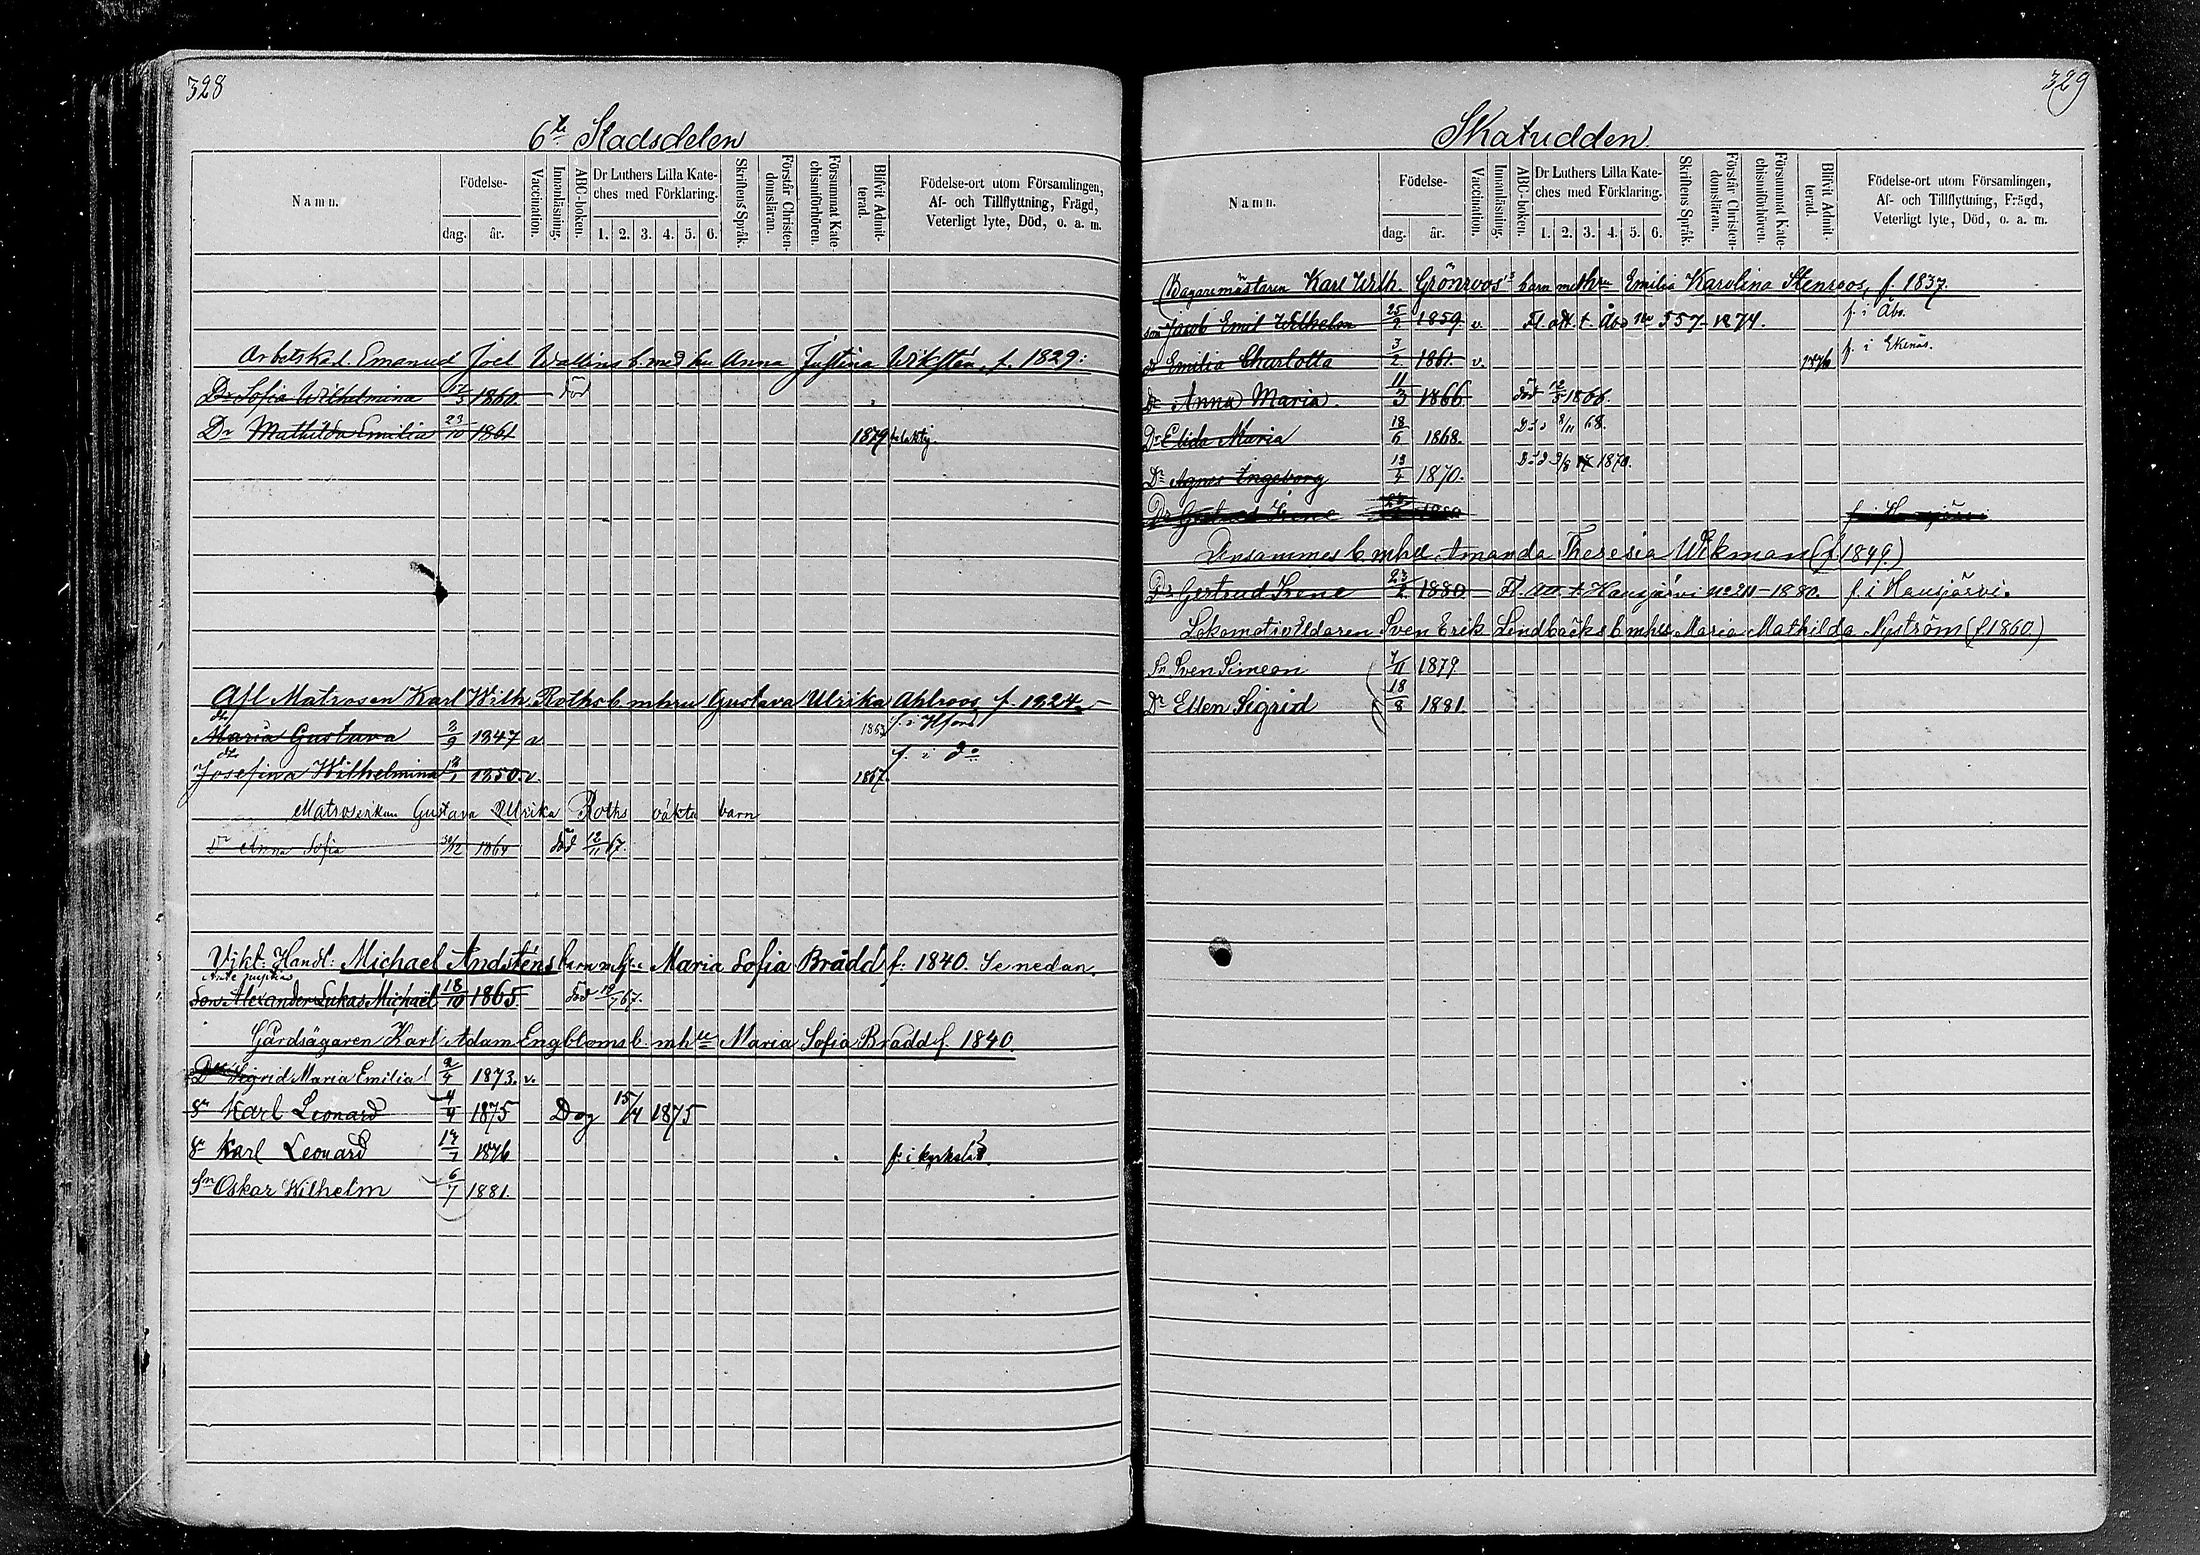 328
6te Stadsdelen
Namn.
Födelse-
dag.
år.
Vaccination.
Innanläsning.
ABC-boken.
Dr Luthers Lilla Kate-
ches med Förklaring.
1. 2. 3. 4. 5. 6.
Skriftens Språk.
Förstår Christen-
domsläran.
Försummat Kate-
chismiförhören.
Blifvit Admit-
terad.
Födelse-ort utom Församlingen,
Af- och Tillflyttning, Frägd,
Veterligt lyte, Död, o. a. m.
Arbetskarl. Emanuel Joel Wallins b. med hu Anna Justina Wiksten, f. 1829:
Dr Sofia Wilhelmina 1860. död
Dr Mathilda Emilia 23/10 1861 1879
Afl Matrosen Karl Wilh. Roths b mhru Gustava Ulrika Ahlroos f. 1824.
dr Maria Gustava 3/9 1847 v f. i Hfors
dr Josefina Wilhelmina 1850. v 1867. f. i do
Matrosenkan Gustava Ulrika Roths oäkta barn
Dr Anna Sofia 30/12 1864 död 12/11 67.
Vikt: Handl: Michael Andsténs barn m. Maria Sofia Brädd f: 1840. Se nedan.
Ante nuptias
Son Alexander Lukas Michael 18/10 1865. död 19/7 67.
Gårdsägaren Karl Adam Engbloms b. mh Maria Sofia Brädd f. 1840.
Dr Sigrid Maria Emilia 2/4 1873. v.
Sn Karl Leonard 4/4 1875 Dog 15/4 1875
Sn Karl Leonard 1876 f. i kyrkslä
Sn Oskar Wilhelm 6/7 1881.
329
Skatudden
Namn.
Födelse-
dag.
år.
Vaccination.
Innanläsning.
ABC-boken.
Dr Luthers Lilla Kate-
ches med Förklaring.
1. 2. 3. 4. 5. 6.
Skriftens Språk.
Förstår Christen-
domsläran.
Försummat Kate-
chismiförhören.
Blifvit Admit-
terad.
Födelse-ort utom Församlingen,
Af- och Tillflyttning, Frägd,
Veterligt lyte, Död, o. a. m.
Bagaremästaren Karl Wilh. Grönroos's barn m hu Emilia Karolina Stenroos, f. 1837.
son Jacob Emil Wilhelm 25/9 1859. v. Fl. att. t. Åbo No 557 1874. f. i Åbo.
dr Emilia Charlotta 3/2 1861. v. 1876 f. i Ekenäs.
Dr Anna Maria. 11/3 1866 död 1866.
Dr Elida Maria 18/6 1868. Död 68.
Dr Agnes Ingeborg 13/4 1870. Död 1870.
Dr Gertrud Irene
Densammes b. mhu Amanda Theresia Wikman (f. 1849.)
Dr Gertrud Irene 23/2 1880 Fl. att. t. Hausjärvi No 211-1880. f. i Hausjärvi.
Lokomotiveldaren Sven Erik Lindbäcks b mhu Maria Mathilda Nyström (f. 1860.)
Sn Sven Simeon 7/11 1879
Dr Ellen Sigrid 18/8 1881.